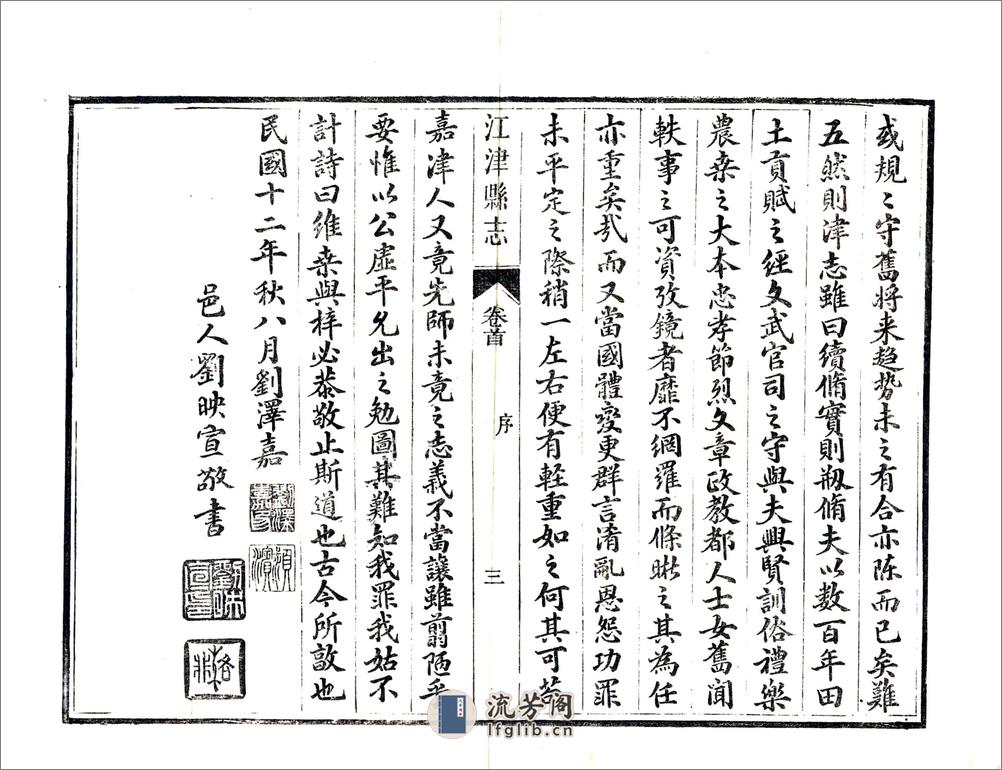 或規〻守舊將来趋勢未之有合亦陈而已矣難
五然則津志雖曰續脩實則剏脩夫以数百年田
土貢賦之經文武官司之守與夫興賢訓俗禮樂
農桒之大本忠孝節烈文章政教都人士女舊聞
軼事之可資攷鏡者靡不網羅而條晰之其為任
亦重矣㢤而又當國體變更群言淆亂恩怨功罪
未平定之際稍一左右便有軽重如之何其可若
江津縣志
卷首
序
三
嘉津人又竟先師未竟之志義不當讓雖翦陋乎
要惟以公虛平允出之勉圖其難知我罪我姑不
計詩曰維桒與梓必恭敬止斯道也古今所敦也
民國十二年秋八月劉澤嘉
劉澤嘉印
潁濱
邑人劉映宣敬書
流芳阁
lfglib.cn